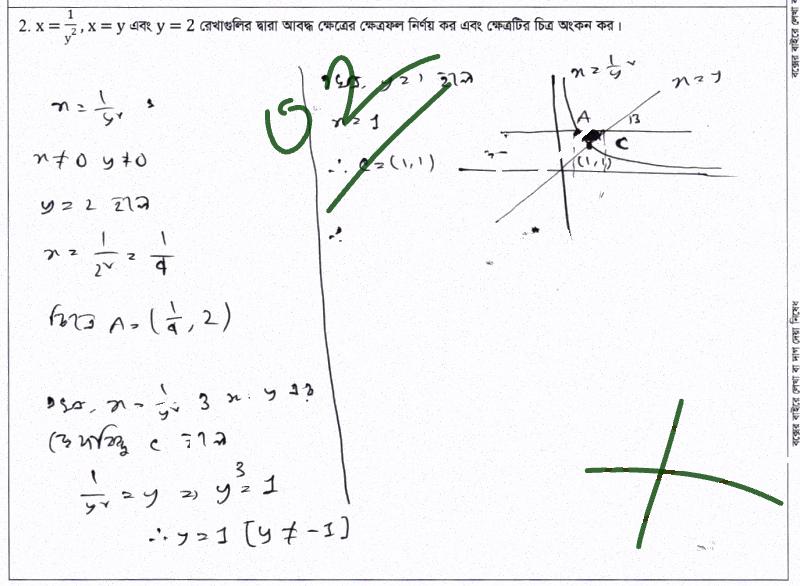 2. x = 1/y², x = y এবং y = 2 রেখাগুলির দ্বারা আবদ্ধ ক্ষেত্রের ক্ষেত্রফল নির্ণয় কর এবং ক্ষেত্রটির চিত্র অংকন কর।
x = 1/y²
x ≠ 0 y ≠ 0
y = 2 হলে
x = 1/2² = 1/4
A = (1/4, 2)
x = 1/y² ও x = y এর
ছেদবিন্দু C হলে
1/y² = y ⇒ y³ = 1
∴ y = 1 [y ≠ -1]
y = 1 হলে
x = 1
∴ C = (1, 1)
∴
x = 1/y²
x = y
A
B
C
(1, 1)
বক্সের বাইরে লেখা বা দাগ দেয়া নিষেধ